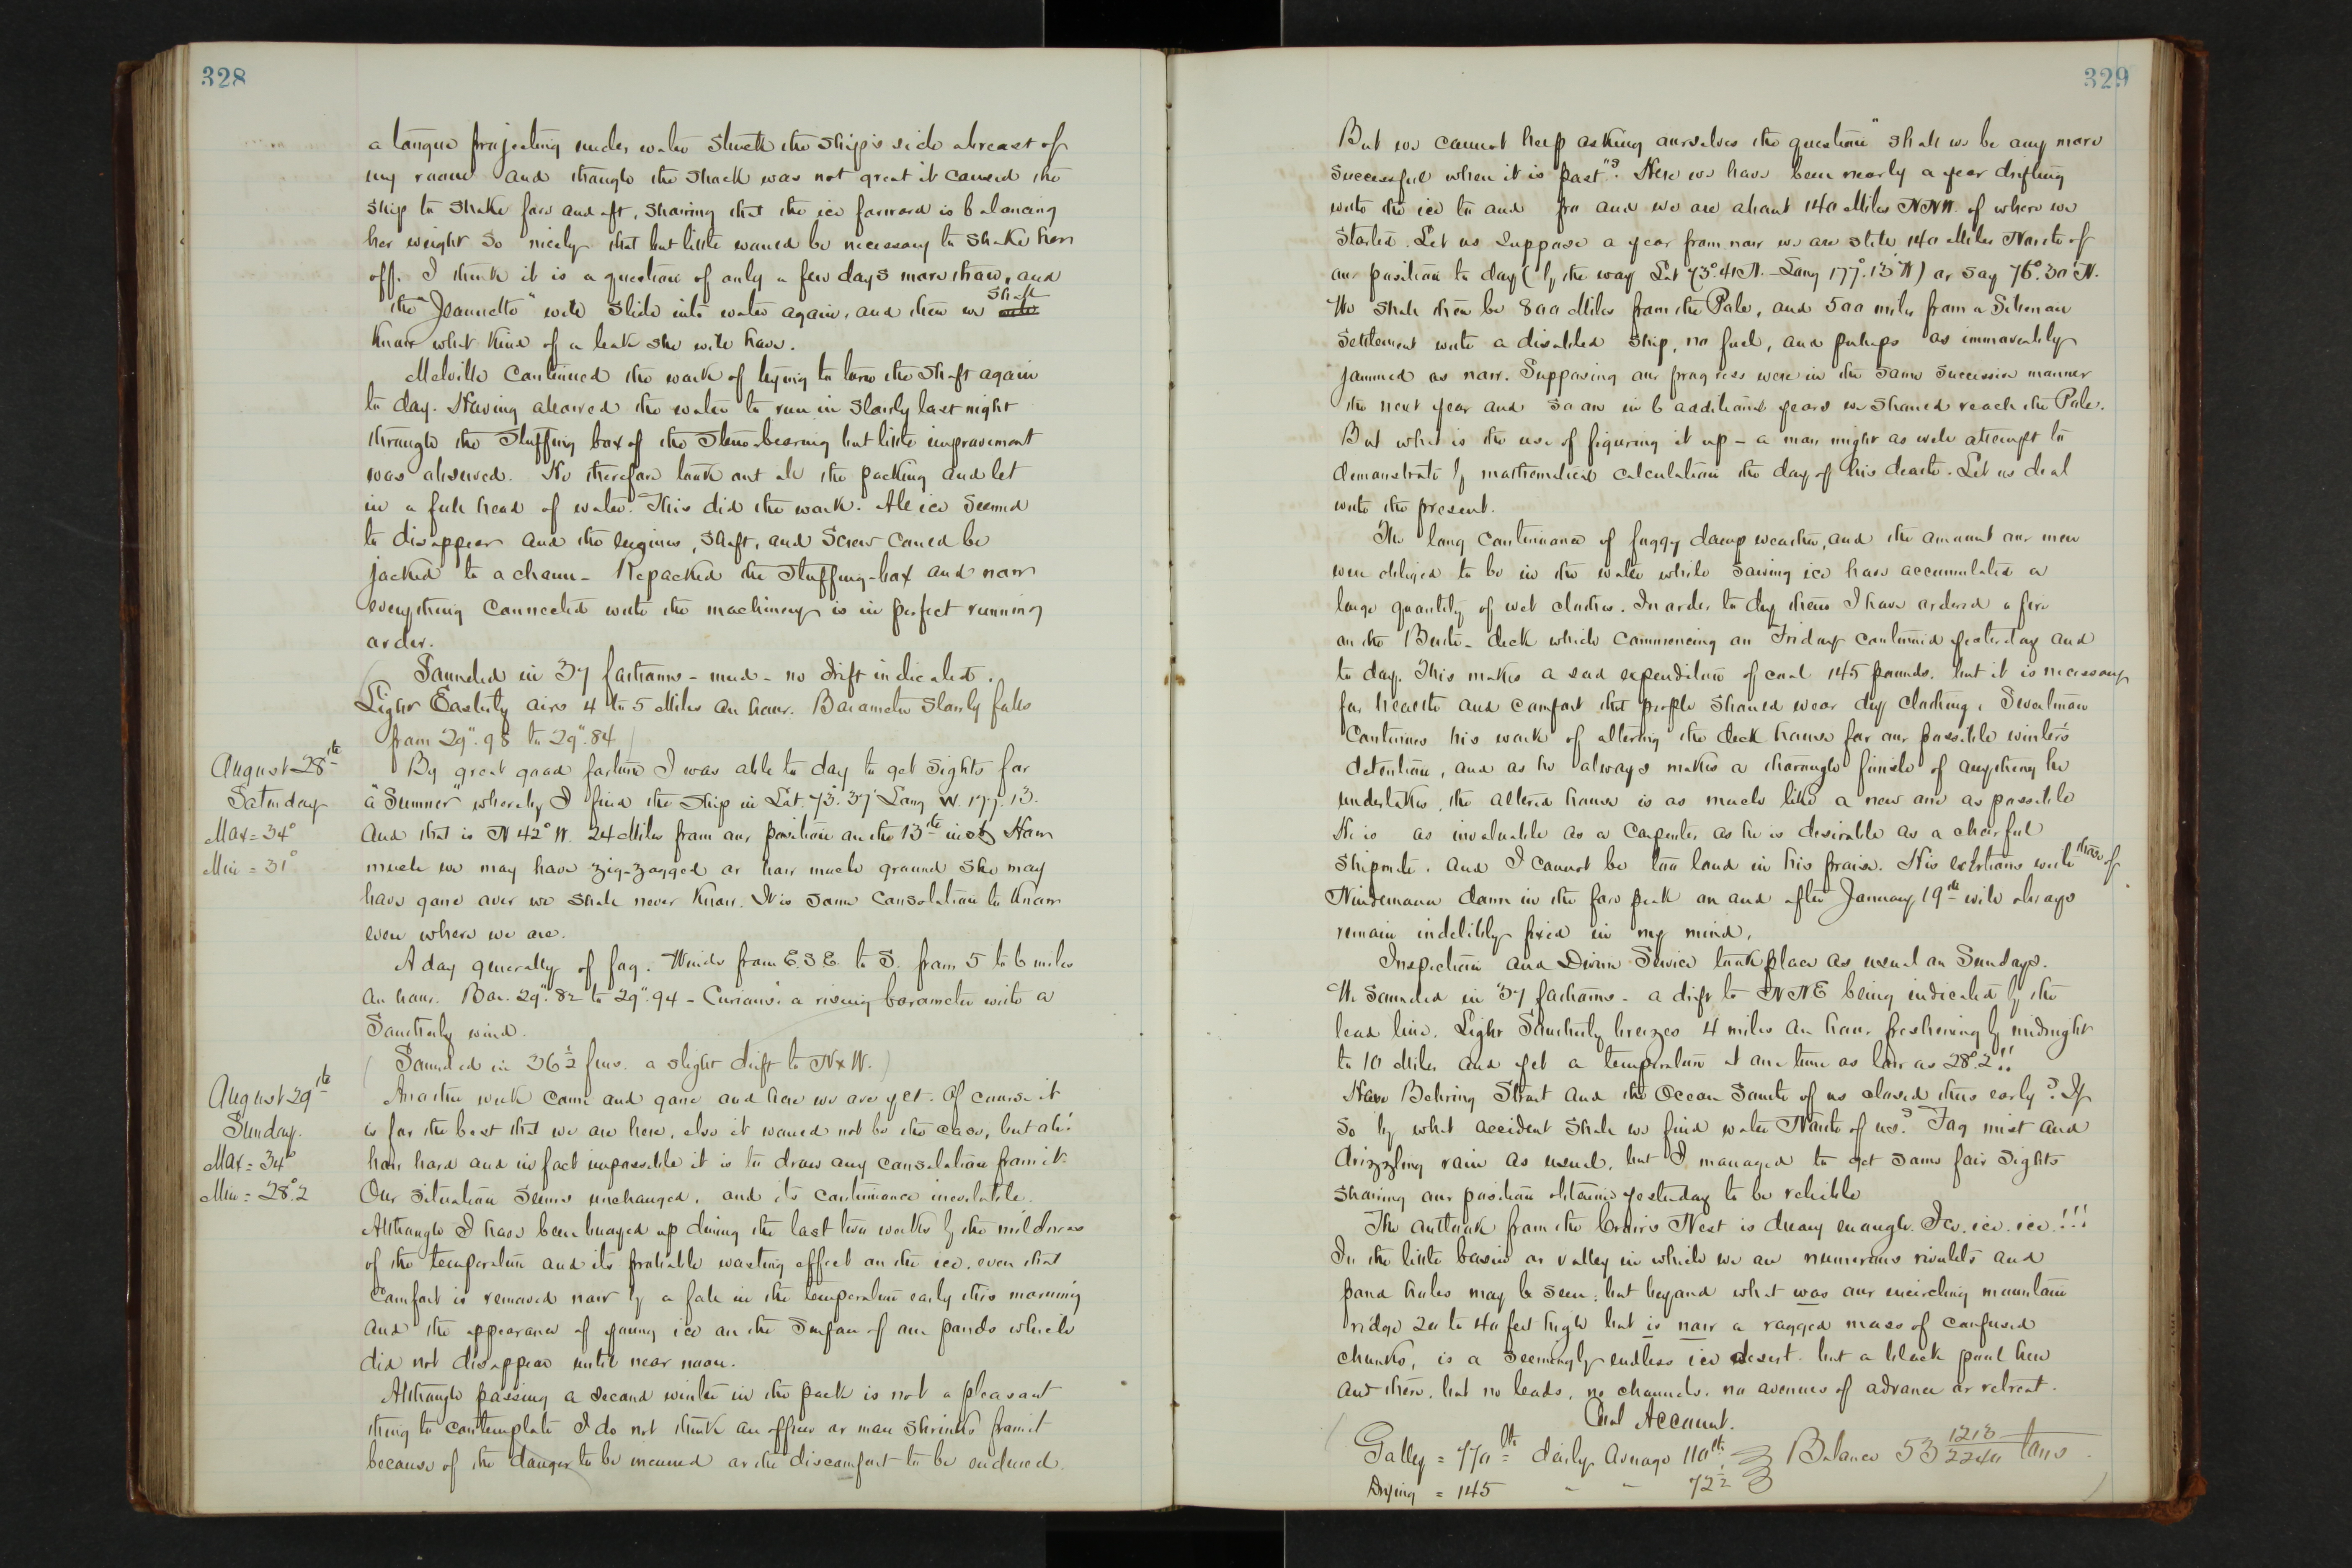 328
a tongue projecting under water struck the ship's side abreast of
my room and though the shock was not great it caused the
ship to shake fore and aft, showing that the ice forward is balancing
her weight so nicely that but little would be necessary to shake her
off. I think it is a question of only a few days more thaw, and
the "Jeannette" will slide into water again, and then we will shall
know what kind of a leak she will have.
Melville continued the work of trying to turn the shaft again
to day. Having allowed the water to run in slowly last night
through the stuffing box of the stern-bearing but little improvement
was observed. He therefore took out all the packing and let
in a full head of water. This did the work. All ice seemed
to disappear and the engines, shaft, and screw could be
jacked to a charm - Repacked the stuffing-box and now
everything connected with the machinery is in perfect running
order.
(Sounded in 37 fathoms - mud - no drift indicated.
Light Easterly airs 4 to 5 Miles an hour. Barometer slowly falls
from 29".98 to 29".84)
August 28th
Saturday
Max = 34°
Min = 31°
By great good fortune I was able to day to get sights for
a "Sumner" whereby I find the ship in Lat. 73.37 Long W. 177.13.
and that is N 42° W. 24 Miles from our position on the 13th inst How
much we may have zig-zagged or how much ground she may
have gone over we shall never know. It is some consolation to know
even where we are.
A day generally of fog. Winds from E.S.E. to S. from 5 to 6 miles
an hour. Bar. 29".82 to 29".94 - Curious! a rising barometer with a
Southerly wind.
(Sounded in 36 1/2 fms. a slight drift to NxW.)
August 29th
Sunday.
Max = 34°
Min = 28°.2
Another week come and gone and here we are yet. Of course it
is for the best that we are here, else it would not be the case, but ah!
how hard and in fact impossible it is to draw any consolation from it.
Our situation seems unchanged, and its continuance inevitable.
Although I have been buoyed up during the last two weeks by the mildness
of the temperature and its probable wasting effect on the ice, even that
comfort is removed now by a fall in the temperature early this morning
and the appearance of young ice on the surface of our ponds which
did not disappear until near noon.
Although passing a second winter in the pack is not a pleasant
thing to contemplate I do not think an officer or man shrinks from it
because of the danger to be incurred or the discomfort to be endured.
329
But we cannot keep asking ourselves the question "shall we be any more
successful when it is past"? Here we have been nearly a year drifting
with the ice to and fro and we are about 140 Miles NNW. of where we
started. Let us suppose a year from now we are still 140 Miles North of
our position to day (by the way Lat 73°.41 N. - Long 177°.13' W) or say 76°.30' N.
We shall then be 800 Miles from the Pole, and 500 miles from a Siberian
Settlement with a disabled ship, no fuel, and perhaps as immovably
jammed as now. Supposing our progress were in the same successive manner
the next year and so on in 6 additional years we should reach the Pole.
But what is the use of figuring it up - a man might as well attempt to
demonstrate by mathematical calculation the day of his death. Let us deal
with the present.
The long continuance of foggy damp weather, and the amount our men
were obliged to be in the water while sawing ice have accumulated a
large quantity of wet clothes. In order to dry them I have ordered a fire
on the Berth-deck which commencing on Friday continued yesterday and
to day. This makes a sad expenditure of coal 145 pounds, but it is necessary
for health and comfort that people should wear dry clothing. Sweetman
continues his work of altering the deck house for our possible winter's
detention, and as he always makes a thorough finish of anything he
undertakes, the altered house is as much like a new one as possible
He is as invaluable as a carpenter as he is desirable as a cheerful
shipmate, and I cannot be too loud in his praise. His exertions with those of
Nindemann down in the fore peak on and after January 19th will always
remain indelibly fixed in my mind.
Inspection and Divine Service took place as usual on Sundays.
We sounded in 37 fathoms - a drift to NNE being indicated by the
lead line. Light Southerly breezes 4 miles an hour freshening by midnight
to 10 Miles and yet a temperature at one time as low as 28°.2!!
Have Behring Strait and the Ocean South of us closed thus early? If
so by what accident shall we find water North of us? Fog mist and
drizzling rain as usual, but I managed to get some fair sights
showing our position obtained yesterday to be reliable
The outlook from the Crow's Nest is dreary enough. Ice. ice. ice.!!!
In the little basin or valley in which we are numerous rivulets and
pond holes may be seen; but beyond what was our encircling mountain
ridge 20 to 40 feet high but is now a ragged mass of confused
chunks, is a seemingly endless ice desert. but a black pool here
and there, but no leads, no channels, no avenues of advance or retreat.
(Coal Account.
Galley = 770 lbs daily average 110 lbs Balance 53 1218/2240 tons.
Drying = 145 " " 72 1/2)